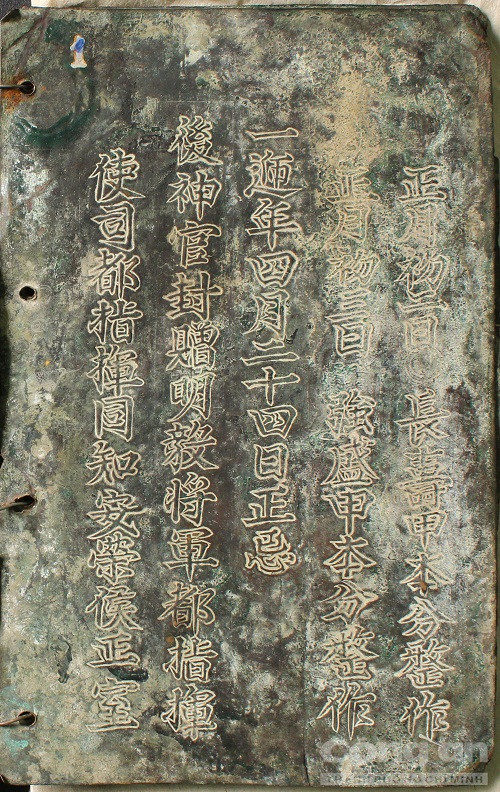 正月初二日 長壽甲本分整作
正月初三日 強盛甲本分整作
一遞年四月二十四日正忌
後神官封贈明毅将軍都指揮
使司都指揮同知安榮侯正室
Công an
THÀNH PHỐ HỒ CHÍ MINH